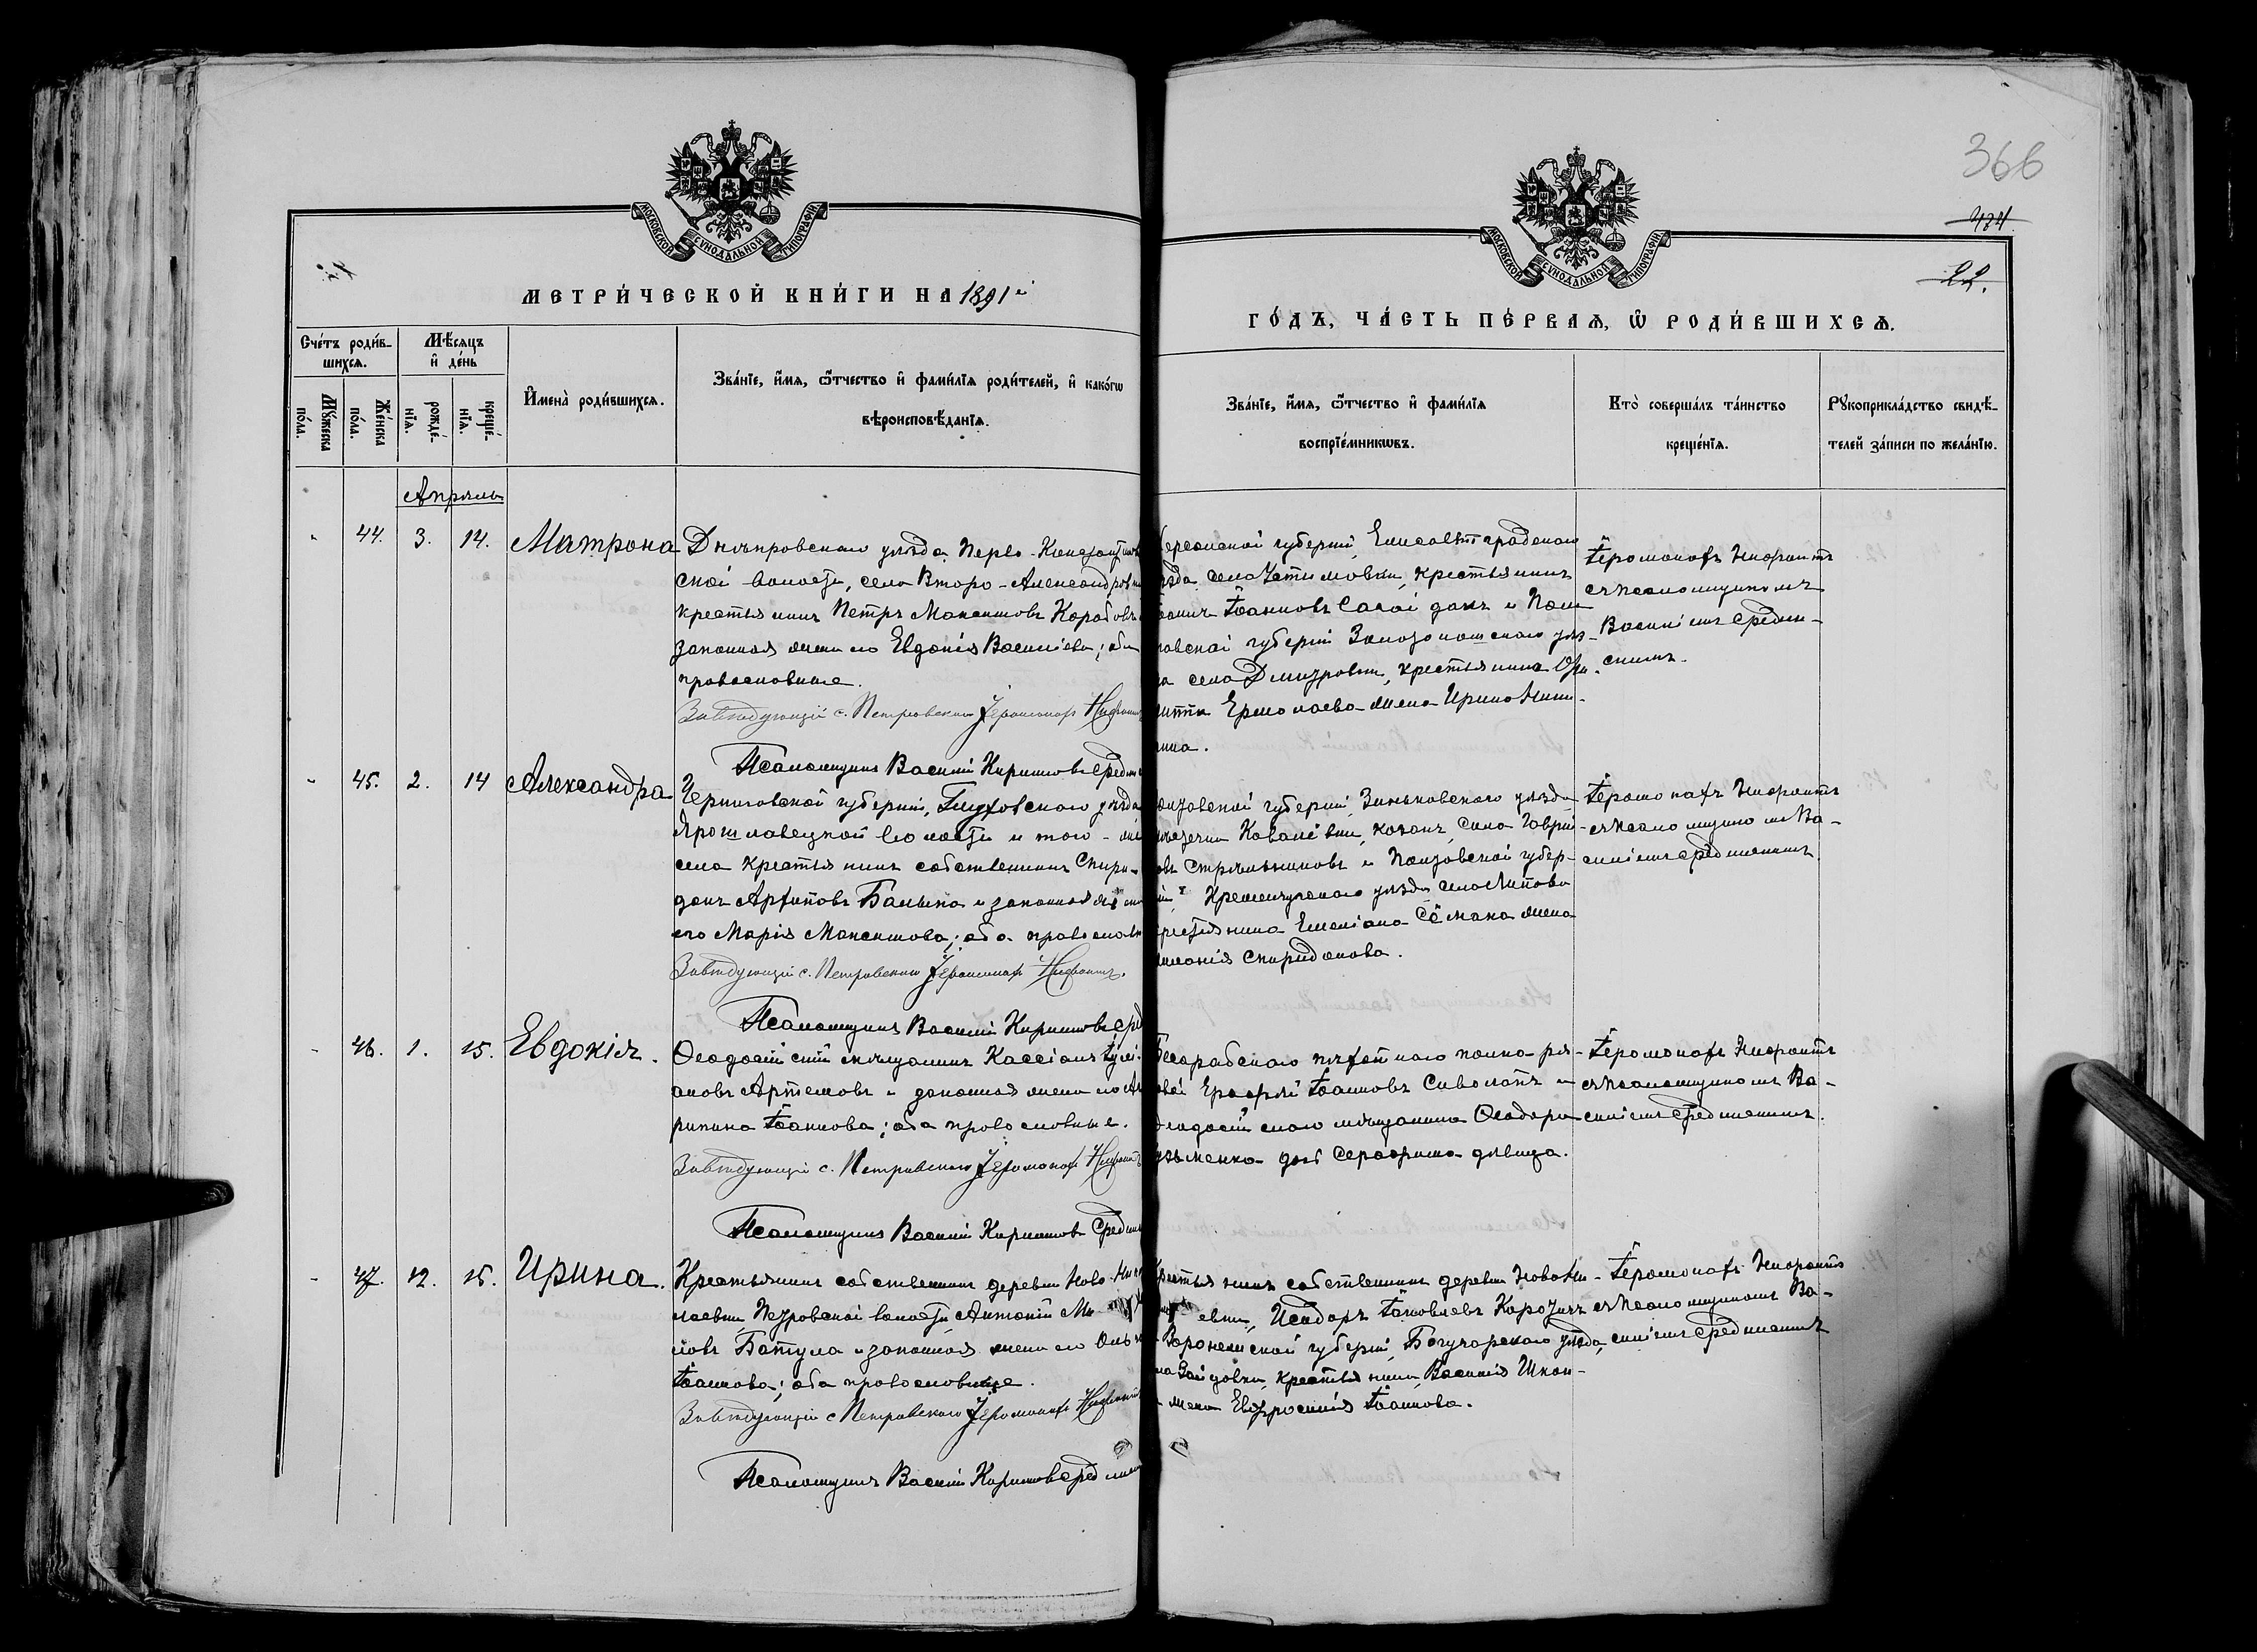 366
474
22.
МОСКОВСКОЙ СѴНОДАЛЬНОЙ ТИПОГРАФІИ
МОСКОВСКОЙ СѴНОДАЛЬНОЙ ТИПОГРАФІИ
МЕТРИ́ЧЕСКОЙ КНИ́ГИ НА 1891 й
ГО́ДЪ, ЧА́СТЬ ПЕ́РВАѦ, Ѡ҆ РОДИ́ВШИХСѦ.
Сче́тъ роди́в-
шихсѧ.
Мꙋ́жеска
по́ла.
Же́нска
по́ла.
Мѣ́сѧцъ
и҆ де́нь
рожде́-
нїѧ.
креще́-
нїѧ.
И҆мена̀ роди́вшихсѧ.
Зва́нїе, и҆́мѧ, ѻ҆́тчество и҆ фами́лїѧ роди́телей, и҆ како́гѡ
вѣроисповѣ́данїѧ.
Зва́нїе, и҆́мѧ, ѻ҆́тчество и҆ фами́лїѧ
воспрїе́мникѡвъ.
Кто̀ соверша́лъ та́инство
креще́нїѧ.
Рꙋкоприкла́дство свидѣ́-
телей за́писи по жела́нїю.
Апрѣль
44. 3. 14. Матрона
Днѣпровскаго уѣзда Перво-Константинов
ской волости, села Второ-Александровки
крестьянинъ Петръ Максимовъ Коробовъ и
законная жена его Евдокія Василіева; оба
православные.
Завѣдующій с. Петровскимъ Іеромонахъ Нифонтъ
Псаломщикъ Василій Кириловъ Средин
Херсонской губерніи, Елисаветградскаго
уѣзда села Устимовки, крестьянинъ
Іоанновъ и
губерніи Золотоношскаго уѣз-
да села Дмитровки, крестьянина
Ермолаева жена Ирина
Іеромонахъ Нифонтъ
съ псаломщикомъ
Василіемъ Средин-
скимъ.
45. 2. 14 Александра
Черниговской губерніи, Глуховскаго уѣзда
Ярославецкой волости и того-же
села крестьянинъ собственникъ Спири-
донъ Архиповъ и законная жена
его Марія Максимова; оба православн
Завѣдующій с. Петровскимъ Іеромонахъ Нифонтъ.
Псаломщикъ Василій Кириловъ Сред
губерніи, Зиньковскаго уѣзда
казакъ Гаврі-
овъ и Полтавской губер-
ніи Кременчугскаго уѣзда
крестьянина Емеліана жена
Спиридонова.
Іеромонахъ Нифонтъ
съ псаломщикомъ Ва-
силіемъ Срединскимъ
46. 1. 15. Евдокія.
Ѳеодосійскій мѣщанинъ Кассіанъ Іулі-
ановъ Артемовъ и законная жена его Аг
рипина Іоаннова; оба православные.
Завѣдующій с. Петровскимъ Іеромонахъ Нифонтъ
Псаломщикъ Василій Кириловъ Средин
Бессарабскаго пѣхотнаго полка ря-
довой Ерофей Іоанновъ и
Ѳеодосійскаго мѣщанина Ѳеодора
дочь Серафима дѣвица.
Іеромонахъ Нифонтъ
съ псаломщикомъ Ва-
силіемъ Срединскимъ.
47. 12. 15. Ирина.
Крестьянинъ собственникъ деревни Ново-Ник
лаевки, Петровской волости Антоній Ми
ловъ и законная жена его Ольга
Іоаннова; оба православные.
Завѣдующій с. Петровскимъ Іеромонахъ Нифонтъ
Псаломщикъ Василій Кириловъ Средин
Крестьянинъ собственникъ деревни Новони-
евки, Исидоръ Іаковлевъ
Воронежской губерніи, Богучарскаго уѣзда,
крестьянина Василія
жена Евфросинія Іоаннова.
Іеромонахъ Нифонтъ
съ псаломщикомъ Ва-
силіемъ Срединскимъ